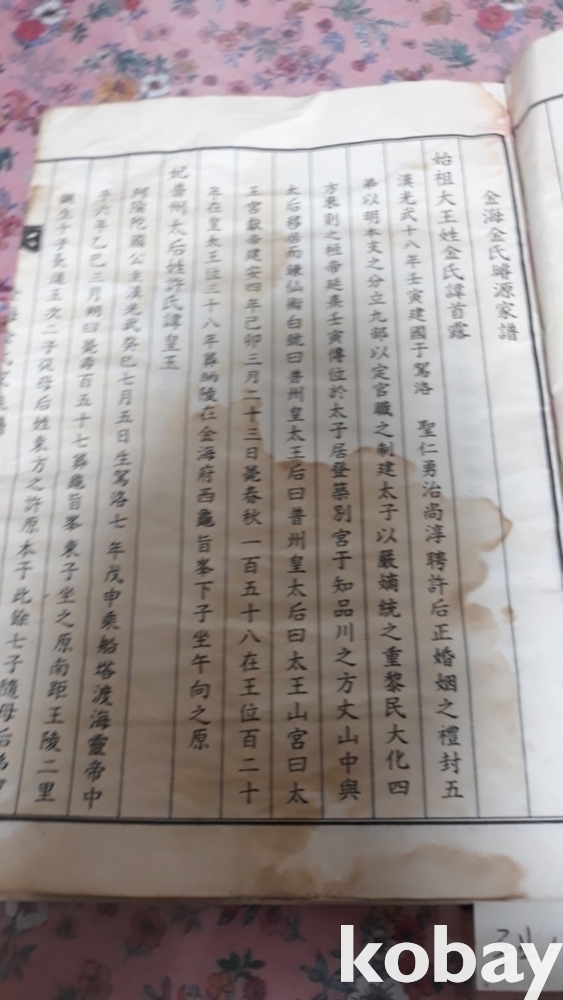 金海金氏璿源家譜
始祖大王姓金氏諱首露
漢光武十八年壬寅建國于駕洛 聖仁勇治尚淳聘許后正婚姻之禮封五
弟以明本支之分立九部以定官職之制建太子以嚴嫡統之重黎民大化四
方來則之桓帝延熹壬寅傳位於太子居登築別宮于知品川之方丈山中與
太后移居而鍊仙術自號曰普州皇太王后曰普州皇太后曰太王山宮曰太
王宮獻帝建安四年己卯三月二十三日薨春秋一百五十八在王位百二十
年在皇太王位三十八年葬納陵在金海府西龜旨峯下子坐午向之原
妃普州太后姓許氏諱皇玉
阿隃陀國公主漢光武癸巳七月五日生駕洛七年戊申乘船塔渡海靈帝中
平六年乙巳三月朔日薨壽百五十七葬龜旨峯東子坐之原南距王陵二里
誕生十子長道王次二子從母后姓東方之許原本于此餘七子隨母后弟
kobay